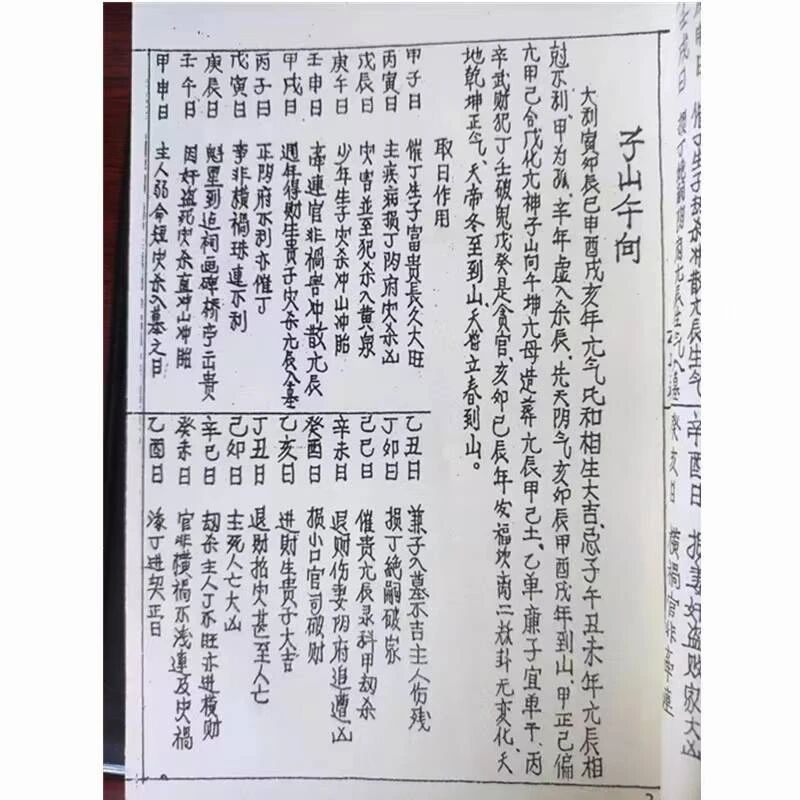 子山午向
大利寅卯辰巳申酉戌亥年亢气氏和相生大吉忌子午丑未年亢辰相
尅不利、甲为孤、辛年虚入杀辰、先天阴气亥卯辰甲酉戌年到山、甲正己偏
亢甲己合戊化亢神子山向午坤亢母造葬亢辰甲己土、乙单庚子宜单干、丙
辛武财犯丁壬破鬼戊癸是贪官、亥卯巳辰年发福坎离二救卦无变化、天
地乾坤正气、天帝冬至到山、天督立春到山。
取日作用
甲子日 催丁生子富贵長久大旺
丙寅日 主疾病损丁阴府灾杀凶
戊辰日 灾害並至犯杀入黄泉
庚午日 少年生子灾杀冲山冲胎
壬申日 牵連官非禍害冲散亢辰
甲戌日 週年得财生貴子灾杀亢辰入墓
丙子日 正阴府不利亦催丁
戊寅日 事非横禍珠連不利
庚辰日 魁罡到造祠画碑桥亭出贵
壬午日 因奸盗死灾杀直冲山冲胎
甲申日 主人弱命短灾杀入墓之日
乙丑日 兼子入墓不吉主人伤残
丁卯日 损丁絶嗣破家
己巳日 催贵亢辰录科甲劫杀
辛未日 退财伤妻阴府追遭凶
癸酉日 损小口官司破财
乙亥日 进财生贵子大吉
丁丑日 退财招灾甚至人亡
己卯日 主死人亡大凶
辛巳日 劫杀主人丁不旺亦进横财
癸未日 官非横禍不浅連及灾禍
乙酉日 添丁进契正日
辛酉日 损妻奸盗败家大凶
癸亥日 横禍官非牵連